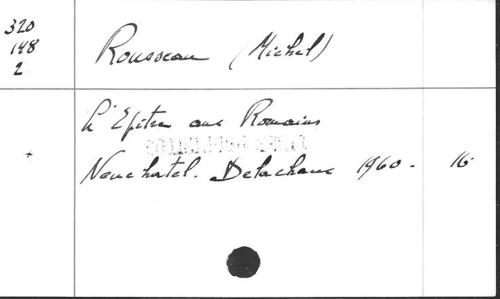 320
148
2
Rousseau (Michel)
L'Epître aux Romains
Neuchatel. Delachaux 1960 - 16